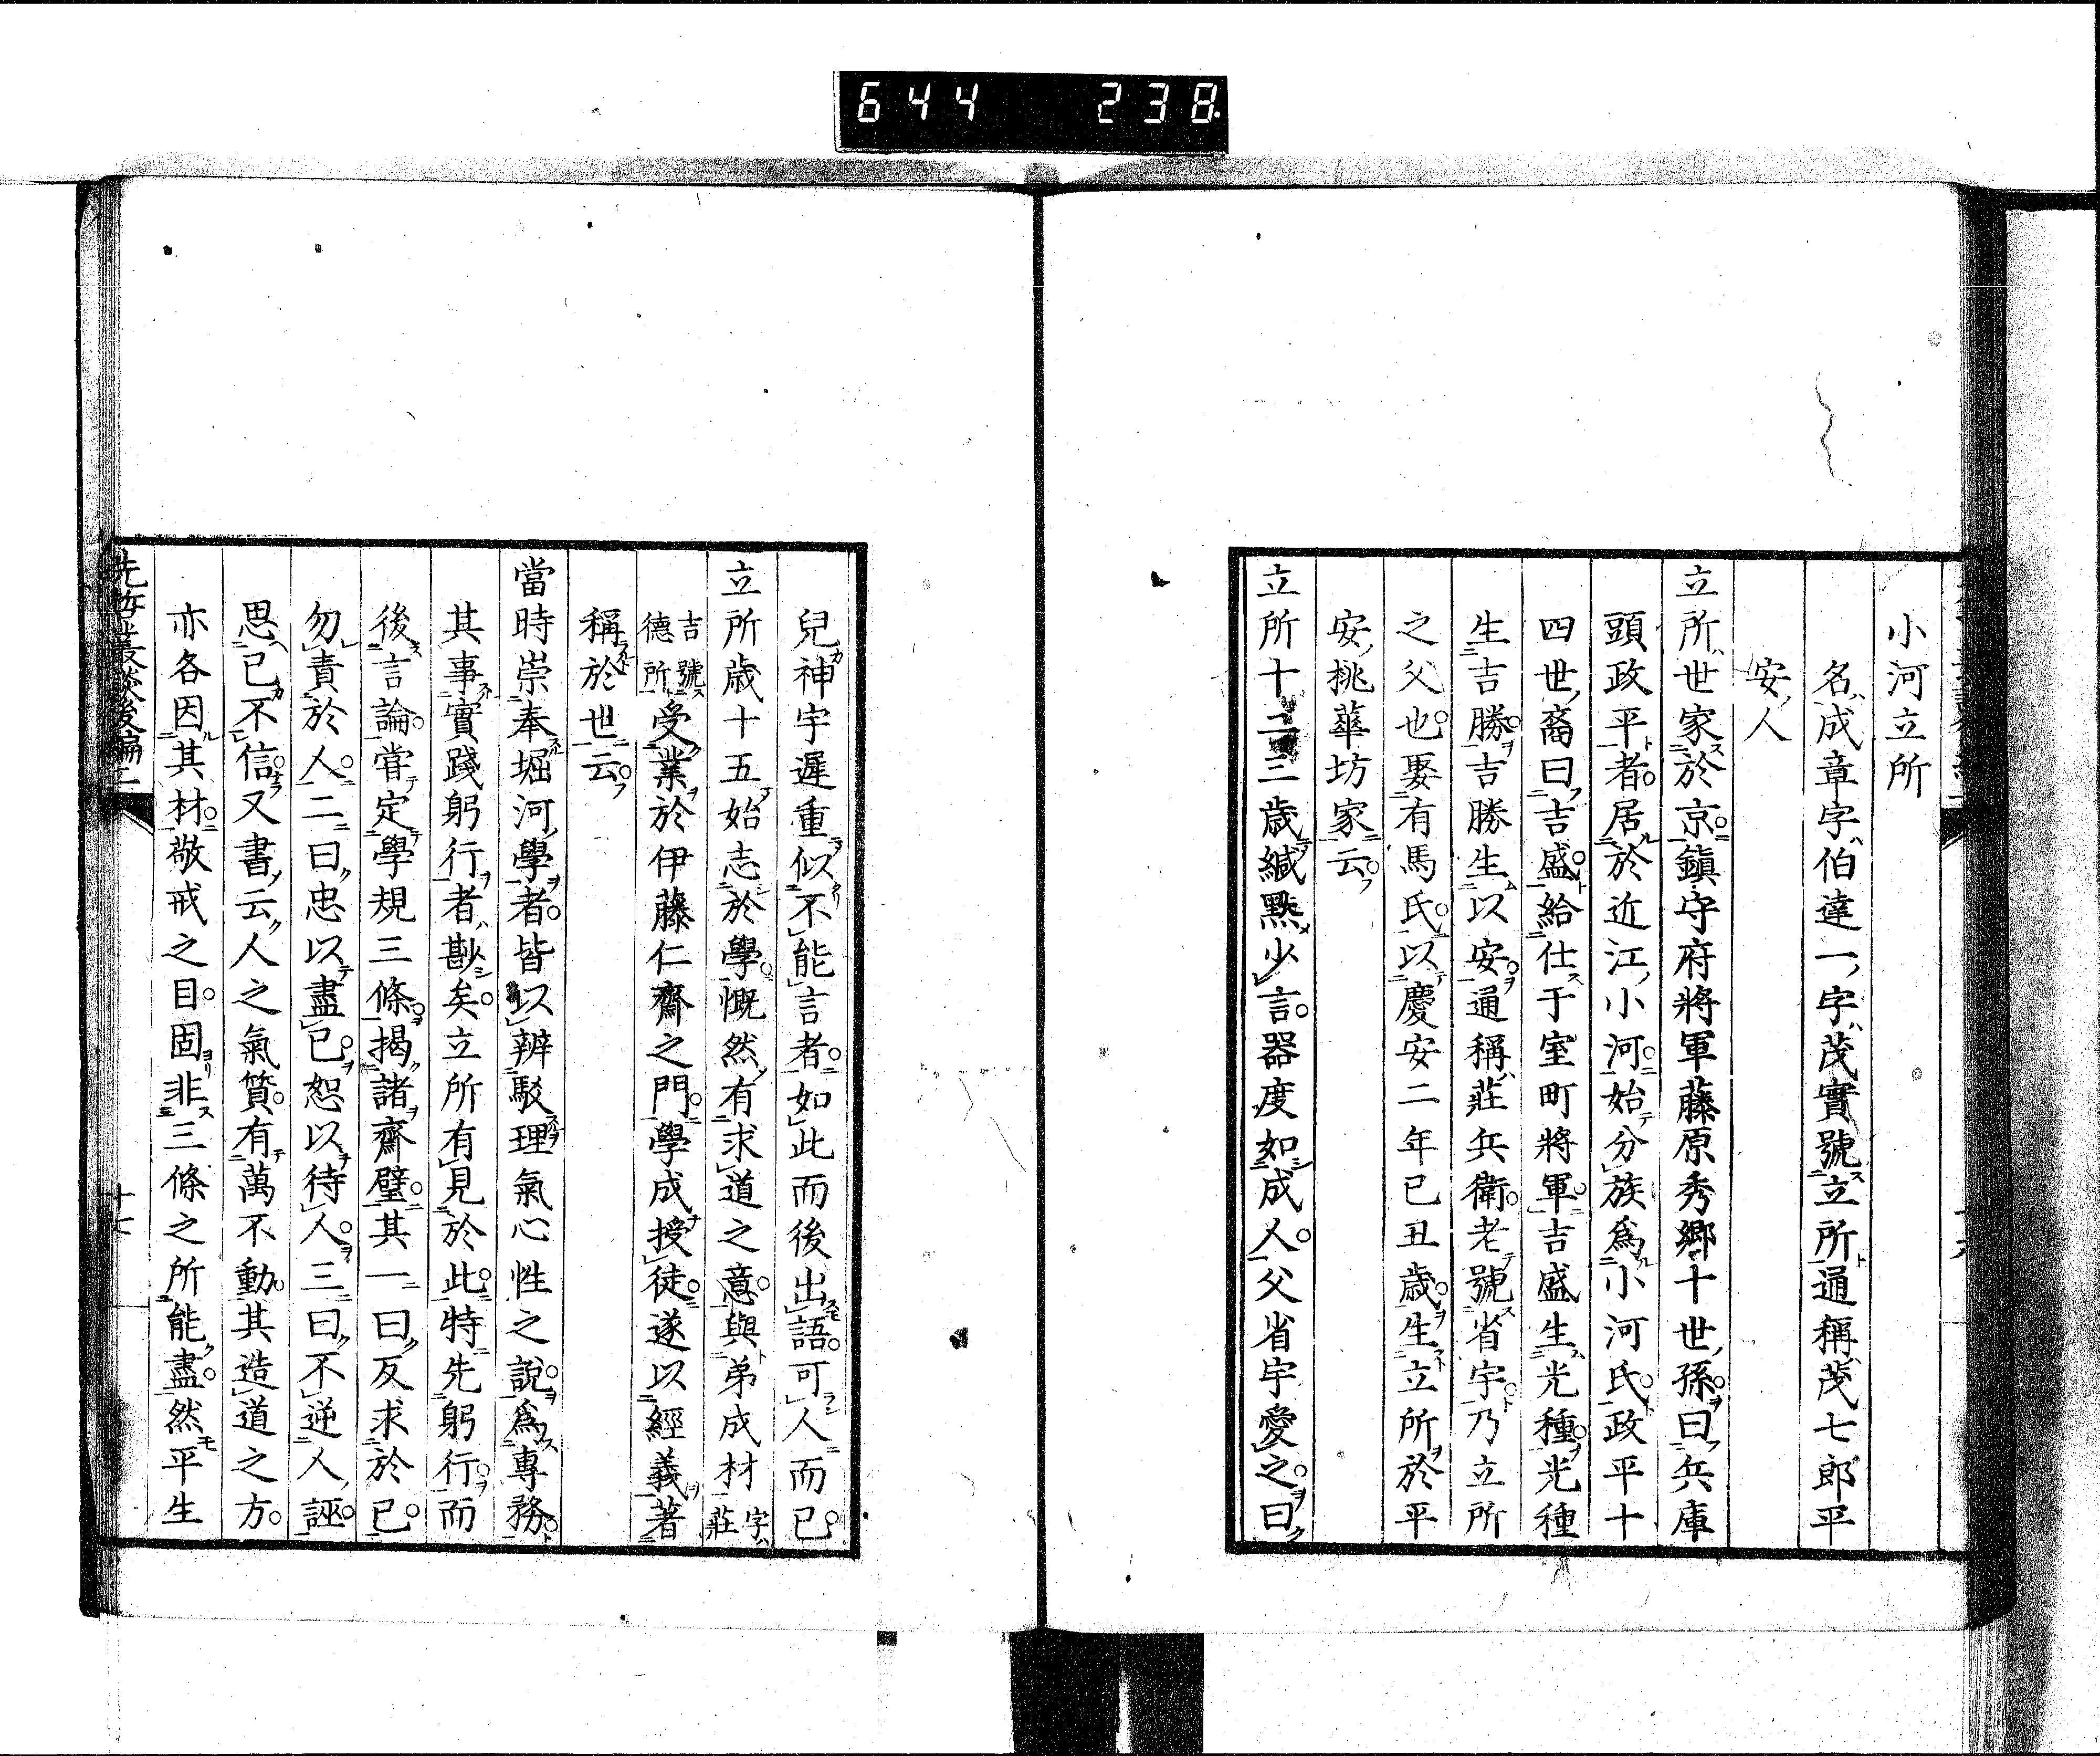 644 238
小河立所
名成章字伯達一字茂實號立所通稱茂七郎平
安人
立所世家於京鎮守府將軍藤原秀郷十世孫曰兵庫
頭政平者居於近江小河始分族爲小河氏政平十
四世裔曰吉盛給仕于室町將軍吉盛生光種光種
生吉勝吉勝生以安通稱莊兵衛老號省宇乃立所
之父也娶有馬氏以慶安二年己丑歳生立所於平
安桃華坊家云
立所十二三歳緘黙少言器度如成人父省宇愛之曰
兒神宇遲重似不能言者如此而後出語可人而已
立所歳十五始志於學慨然有求道之意與弟成材字莊
吉號德所受業於伊藤仁齋之門學成授徒遂以經義著
稱於世云
當時崇奉堀河學者皆以辨駁理氣心性之說爲專務
其事實踐躬行者尠矣立所有見於此特先躬行而
後言論甞定學規三條揭諸齋壁其一曰反求於己
勿責於人二曰忠以盡己恕以待人三曰不逆人誣
思己不信又書云人之氣質有萬不動其造道之方
亦各因其材敬戒之目固非三條之所能盡然平生
先哲叢談後編二
十七